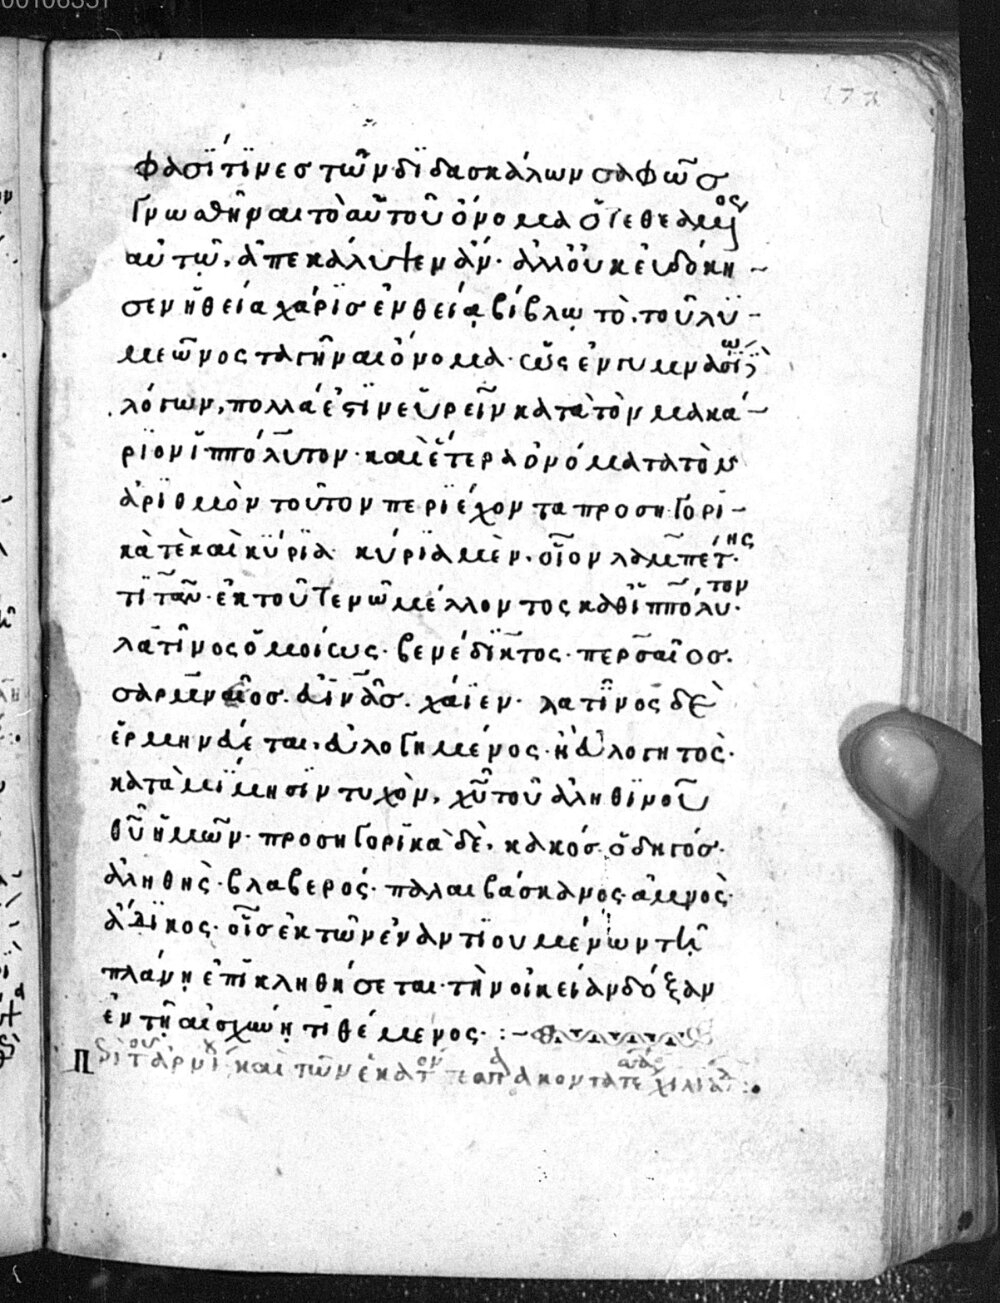 φασί τινες τῶν διδασκάλων σαφῶς
γνωσθῆναι τὸ αὐτοῦ ὄνομα ὅτε θεάμενος
αὐτῷ, ἀπεκάλυψεν ἄν· ἀλλ' οὐκ εὐδόκη
σεν ἡ θεία χάρις ἐν θείᾳ βίβλῳ τὸ, τοῦ λυ
μεῶνος ταγῆναι ὄνομα· ὡς ἐν γυμνασίῳ
λόγων, πολλὰ ἐστὶν εὑρεῖν κατὰ τὸν μακά
ριον ἱππόλυτον· καὶ ἕτερα ὀνόματα τὸν
ἀριθμὸν τοῦτον περιέχοντα προσηγορι
κά τε καὶ κύρια κύρια μὲν, οἷον λαμπέτης·
τιτάν· ἐκ τοῦ τενῶ μέλλοντος καθ' ἱππόλυτον·
λατῖνος ὁμοίως· βενέδικτος· περσαῖος.
σαρμναῖος. αἰνᾶς. χάϊεν· λατῖνος δὲ
ἑρμηνάεται, ἀυλογημένος· ἢ ἀυλογητὸς·
κατὰ μίμησιν τυχὸν, χῦ τοῦ ἀληθινοῦ
θῦ ἡμῶν· προσηγορικὰ δὲ, κακός ὁδηγός·
ἀληθὴς· βλαβερός· πάλαι βάσκανος· ἀμνὸς·
ἄδικος· οἷς ἐκ τῶν ἐναντιουμένων τῇ
πλάνῃ ἐπικληθήσεται· τὴν οἰκείαν δόξαν
ἐν τῇ αἰσχύνῃ τιθέμενος· :~
καὶ τῶν ἑκατὸν χιλιάδ :·